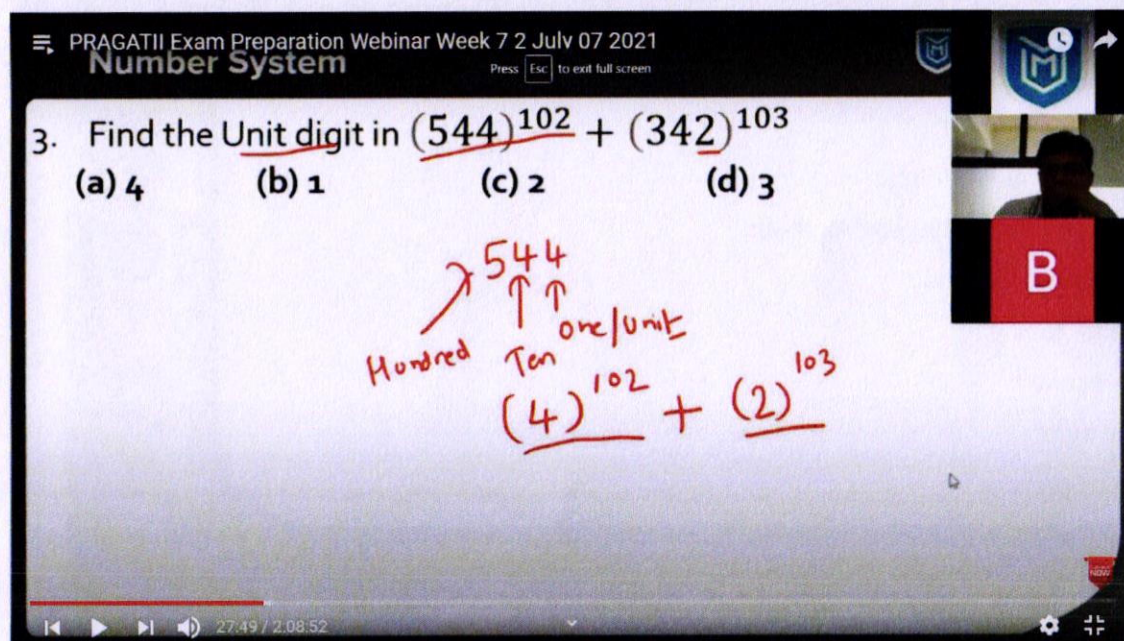 PRAGATII Exam Preparation Webinar Week 7 2 July 07 2021
Number System
Press Esc to exit full screen
3. Find the Unit digit in (544)^102 + (342)^103
(a) 4 (b) 1 (c) 2 (d) 3
544
one/unit
Hundred Ten
(4)^102 + (2)^103
B
NOW
27:49 / 2:08:52